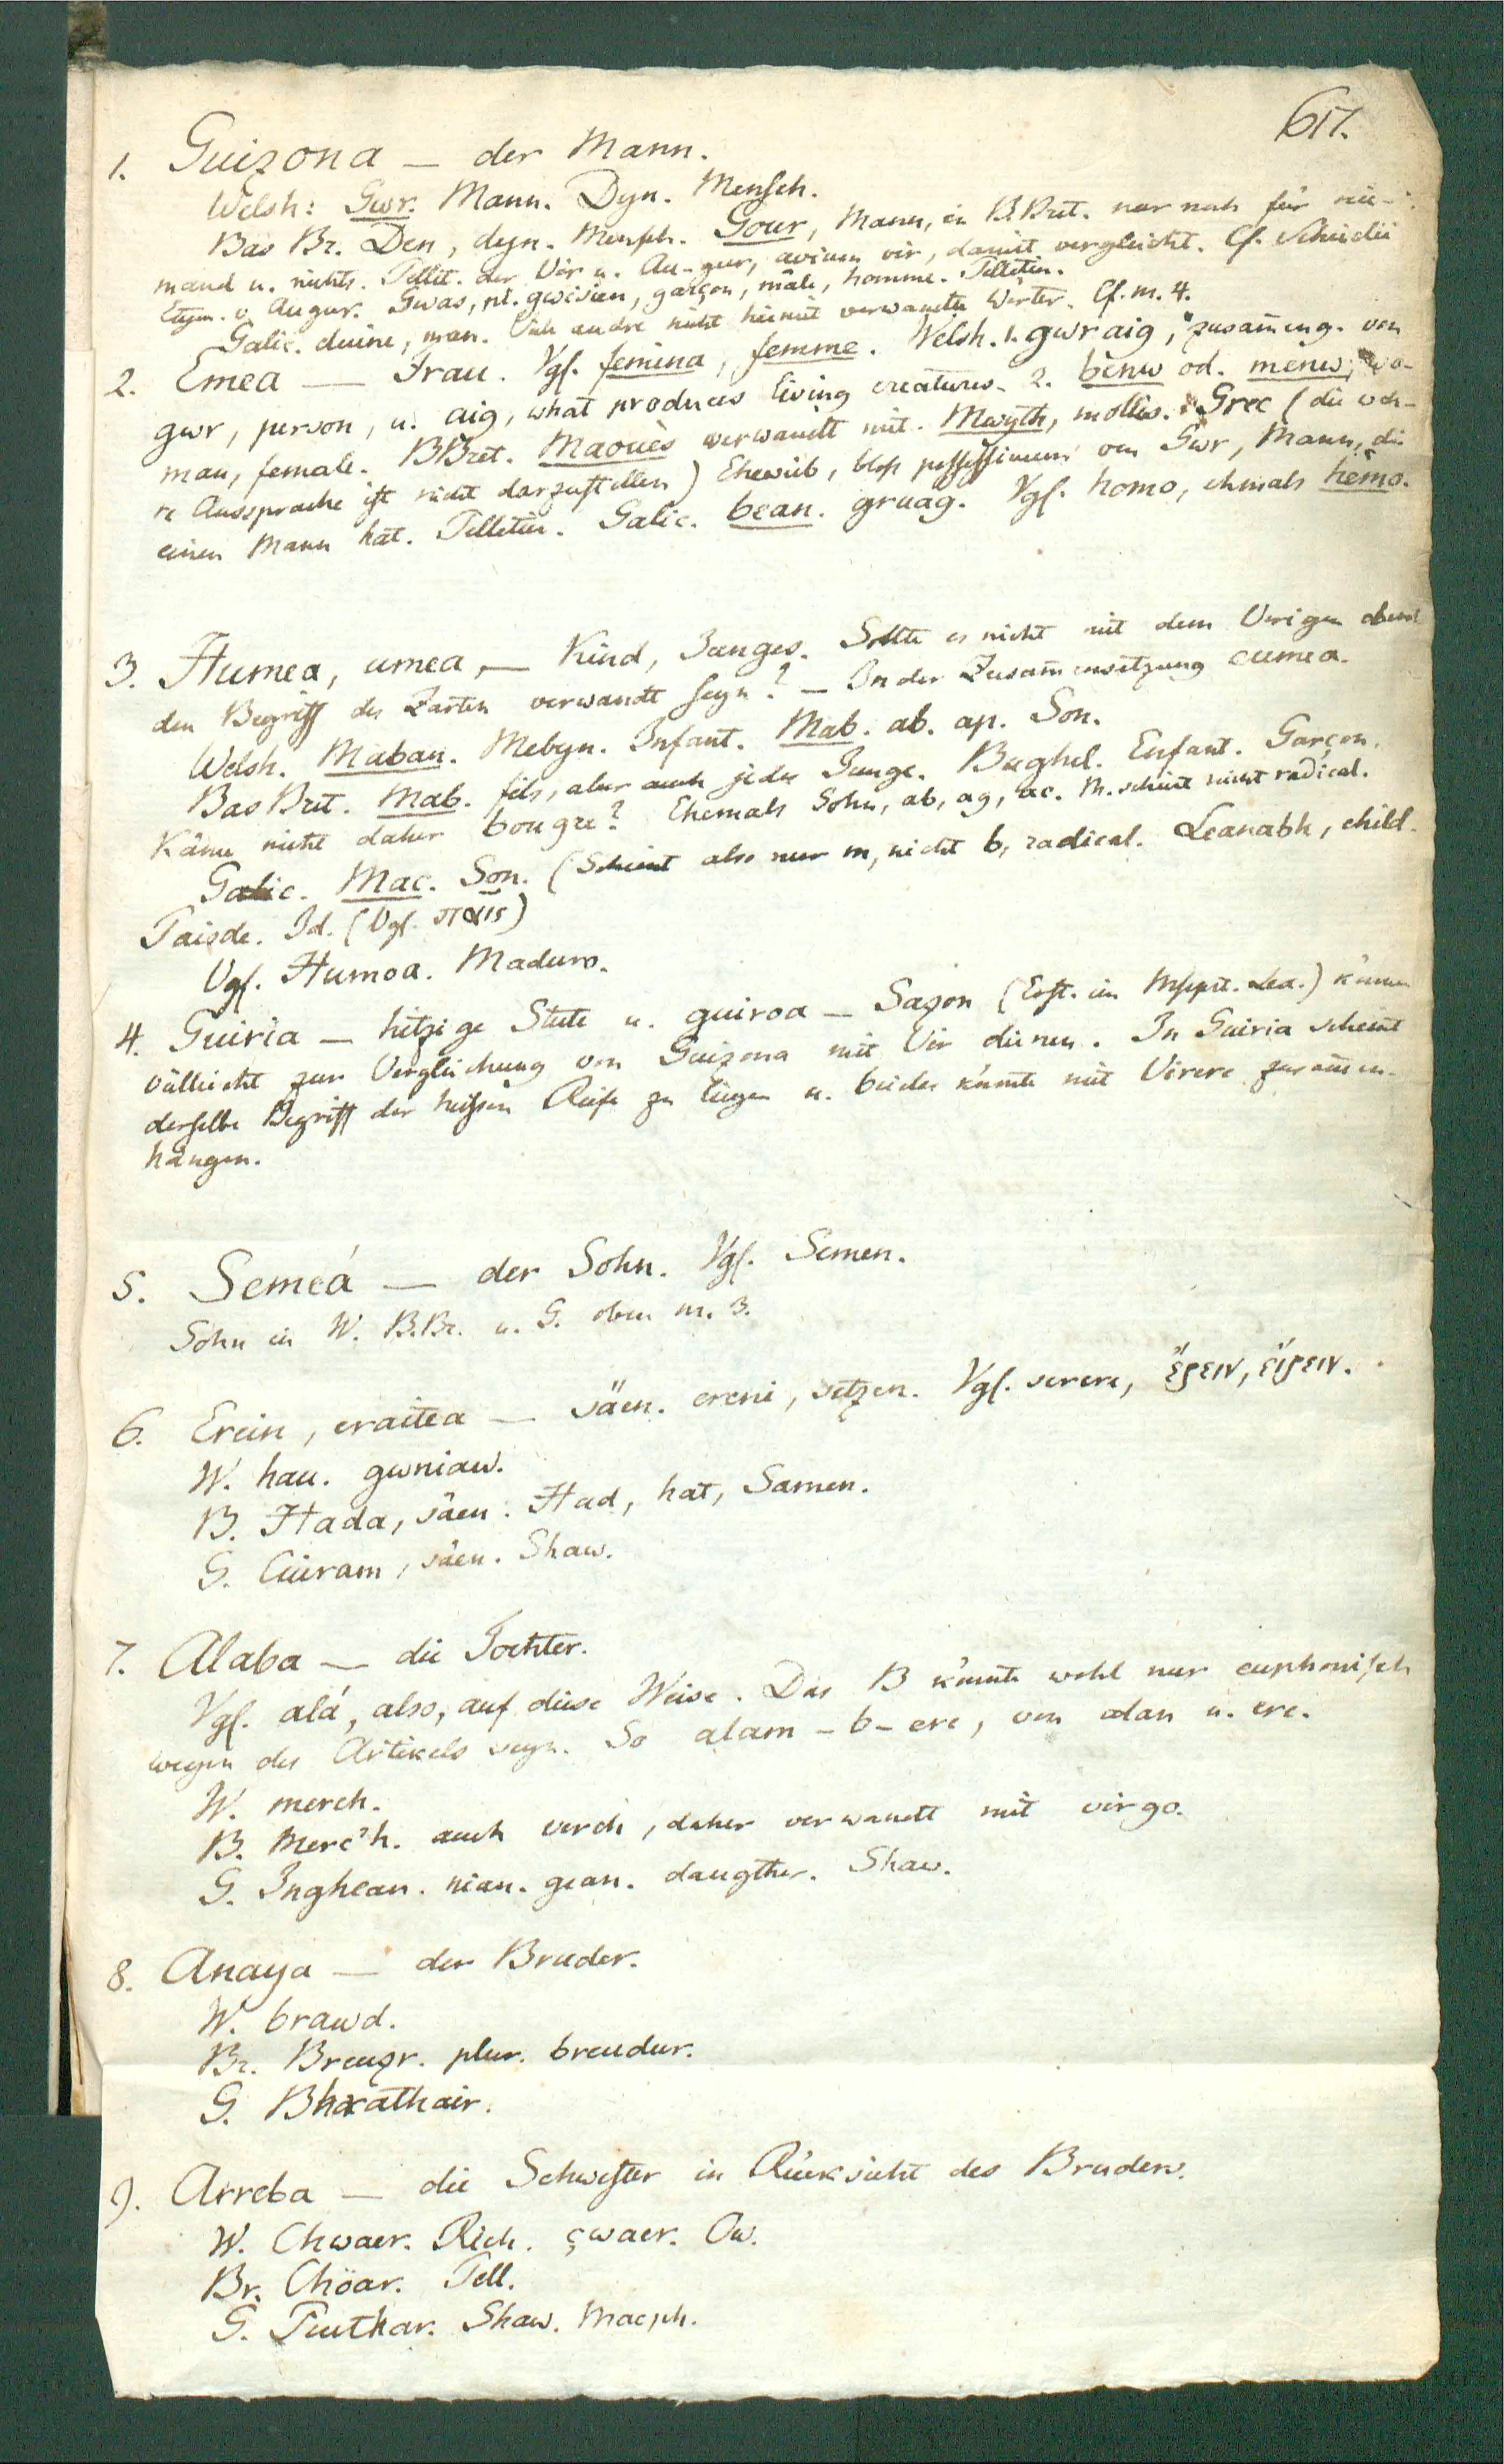 617.
1. Guizona — der Mann.
Welsh: Gwr. Mann. Dyn. Mensch.
Bas Br. Den, dyn. Mensch. Gour, Mann, in B.Bret. nur noch für nie-
mand u. nichts. Pellet. der Vir u. Au-gur, avium vir, damit vergleicht. Cf.
Etym. v. Augur. Gwas, pl. gwision, garçon, mâle, homme. Pelletier.
Galic. duine, man. Viele andre nicht hiemit verwandte Wörter. Cf. nr. 4.
2. Emea — Frau. Vgl. femina, femme. Welsh. 1. gwraig, zusameng. von
gwr, person, u. aig, what produces living creatures. 2. benw od. menw, wo-
man, female. BBret. Maouès verwandt mit. Mwyth, mollis. Grec (die wah-
re Aussprache ist nicht darzustellen) Eheweib, bloss possessivum von Gwr, Mann, die
einen Mann hat. Pelletier. Galic. bean. gruag. Vgl. homo, ehmals hemo.
3. Humea, umea, — Kind, Junges. Sollte es nicht mit dem Vorigen durch
den Begriff des Zarten verwandt seyn? — In der Zusammensetzung eumea.
Welsh. Maban. Mebyn. Infant. Mab. ab. ap. Son.
Bas Bret. Mab. fils, aber auch jeder Junge. Bughel. Enfant. Garçon.
Käme nicht daher bougre? Ehemals Sohn, ab, ag, ac. M. scheint nicht radical.
Galic. Mac. Son. (Scheint also nur m, nicht b, radical. Leanabh, child.
Paisde. Id. (Vgl. παις)
Vgl. Humoa. Maduro.
4. Guiria — hitzige Stute u. guiroa — Sazon (Erst. im Mscpt. Lex.) können
vielleicht zur Vergleichung von Guizona mit Vir dienen. In Guiria scheint
derselbe Begriff der heissen Reife zu liegen u. beides könnte mit Virere zusammen-
hängen.
5. Semeá — der Sohn. Vgl. Semen.
Sohn in W. B.Br. u. G. oben nr. 3.
6. Erein, eraitea — säen. ereni, setzen. Vgl. serere, ἔρειν, εἴρειν.
W. hau. gwniaw.
B. Hada, säen. Had, hat, Samen.
G. Cuiram, säen. Shaw.
7. Alaba — die Tochter.
Vgl. alá, also, auf diese Weise. Das B könnte wohl nur euphonisch
wegen des Artikels seyn. So alam-b-ere, von alan u. ere.
W. merch.
B. Merc'h. auch verch, daher verwandt mit virgo.
G. Inghean. nian. gean. daugther. Shaw.
8. Anaya — der Bruder.
W. brawd.
Br. Breuzr. plur. breudur.
G. Bhrathair.
9. Arreba — die Schwester in Rücksicht des Bruders.
W. Chwaer. Rich. çwaer. Ow.
Br. Chöar. Pell.
G. Piuthar. Shaw. Macph.